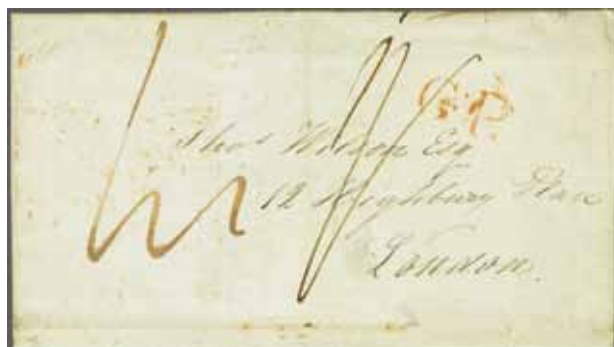 Thos Wilson Esq
12 Highbury Place
London.